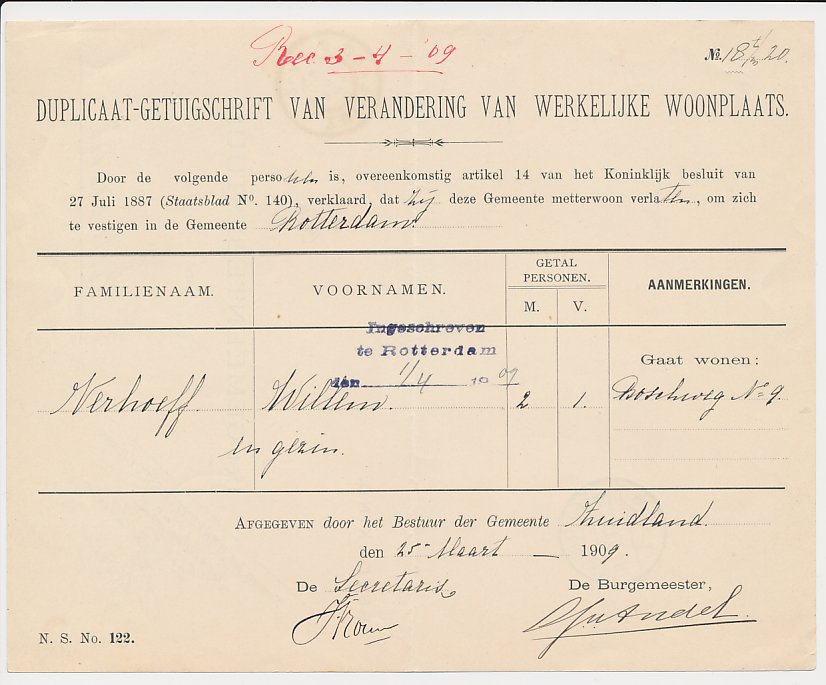 Rec. 3-4-'09
No. 18
DUPLICAAT-GETUIGSCHRIFT VAN VERANDERING VAN WERKELIJKE WOONPLAATS.
Door de volgende persoonen is, overeenkomstig artikel 14 van het Koninklijk besluit van
27 Juli 1887 (Staatsblad No. 140), verklaard, dat zij deze Gemeente metterwoon verlaten, om zich
te vestigen in de Gemeente Rotterdam.
FAMILIENAAM.
VOORNAMEN.
GETAL
PERSONEN.
M. V.
AANMERKINGEN.
Ingeschreven
te Rotterdam
den 1/4 1909
Gaat wonen:
Verhoeff. Willem. 2 1. Boschweg No 9.
en gezin.
AFGEGEVEN door het Bestuur der Gemeente Zuidland.
den 25 Maart — 1909.
De Secretaris
De Burgemeester,
N. S. No. 122.